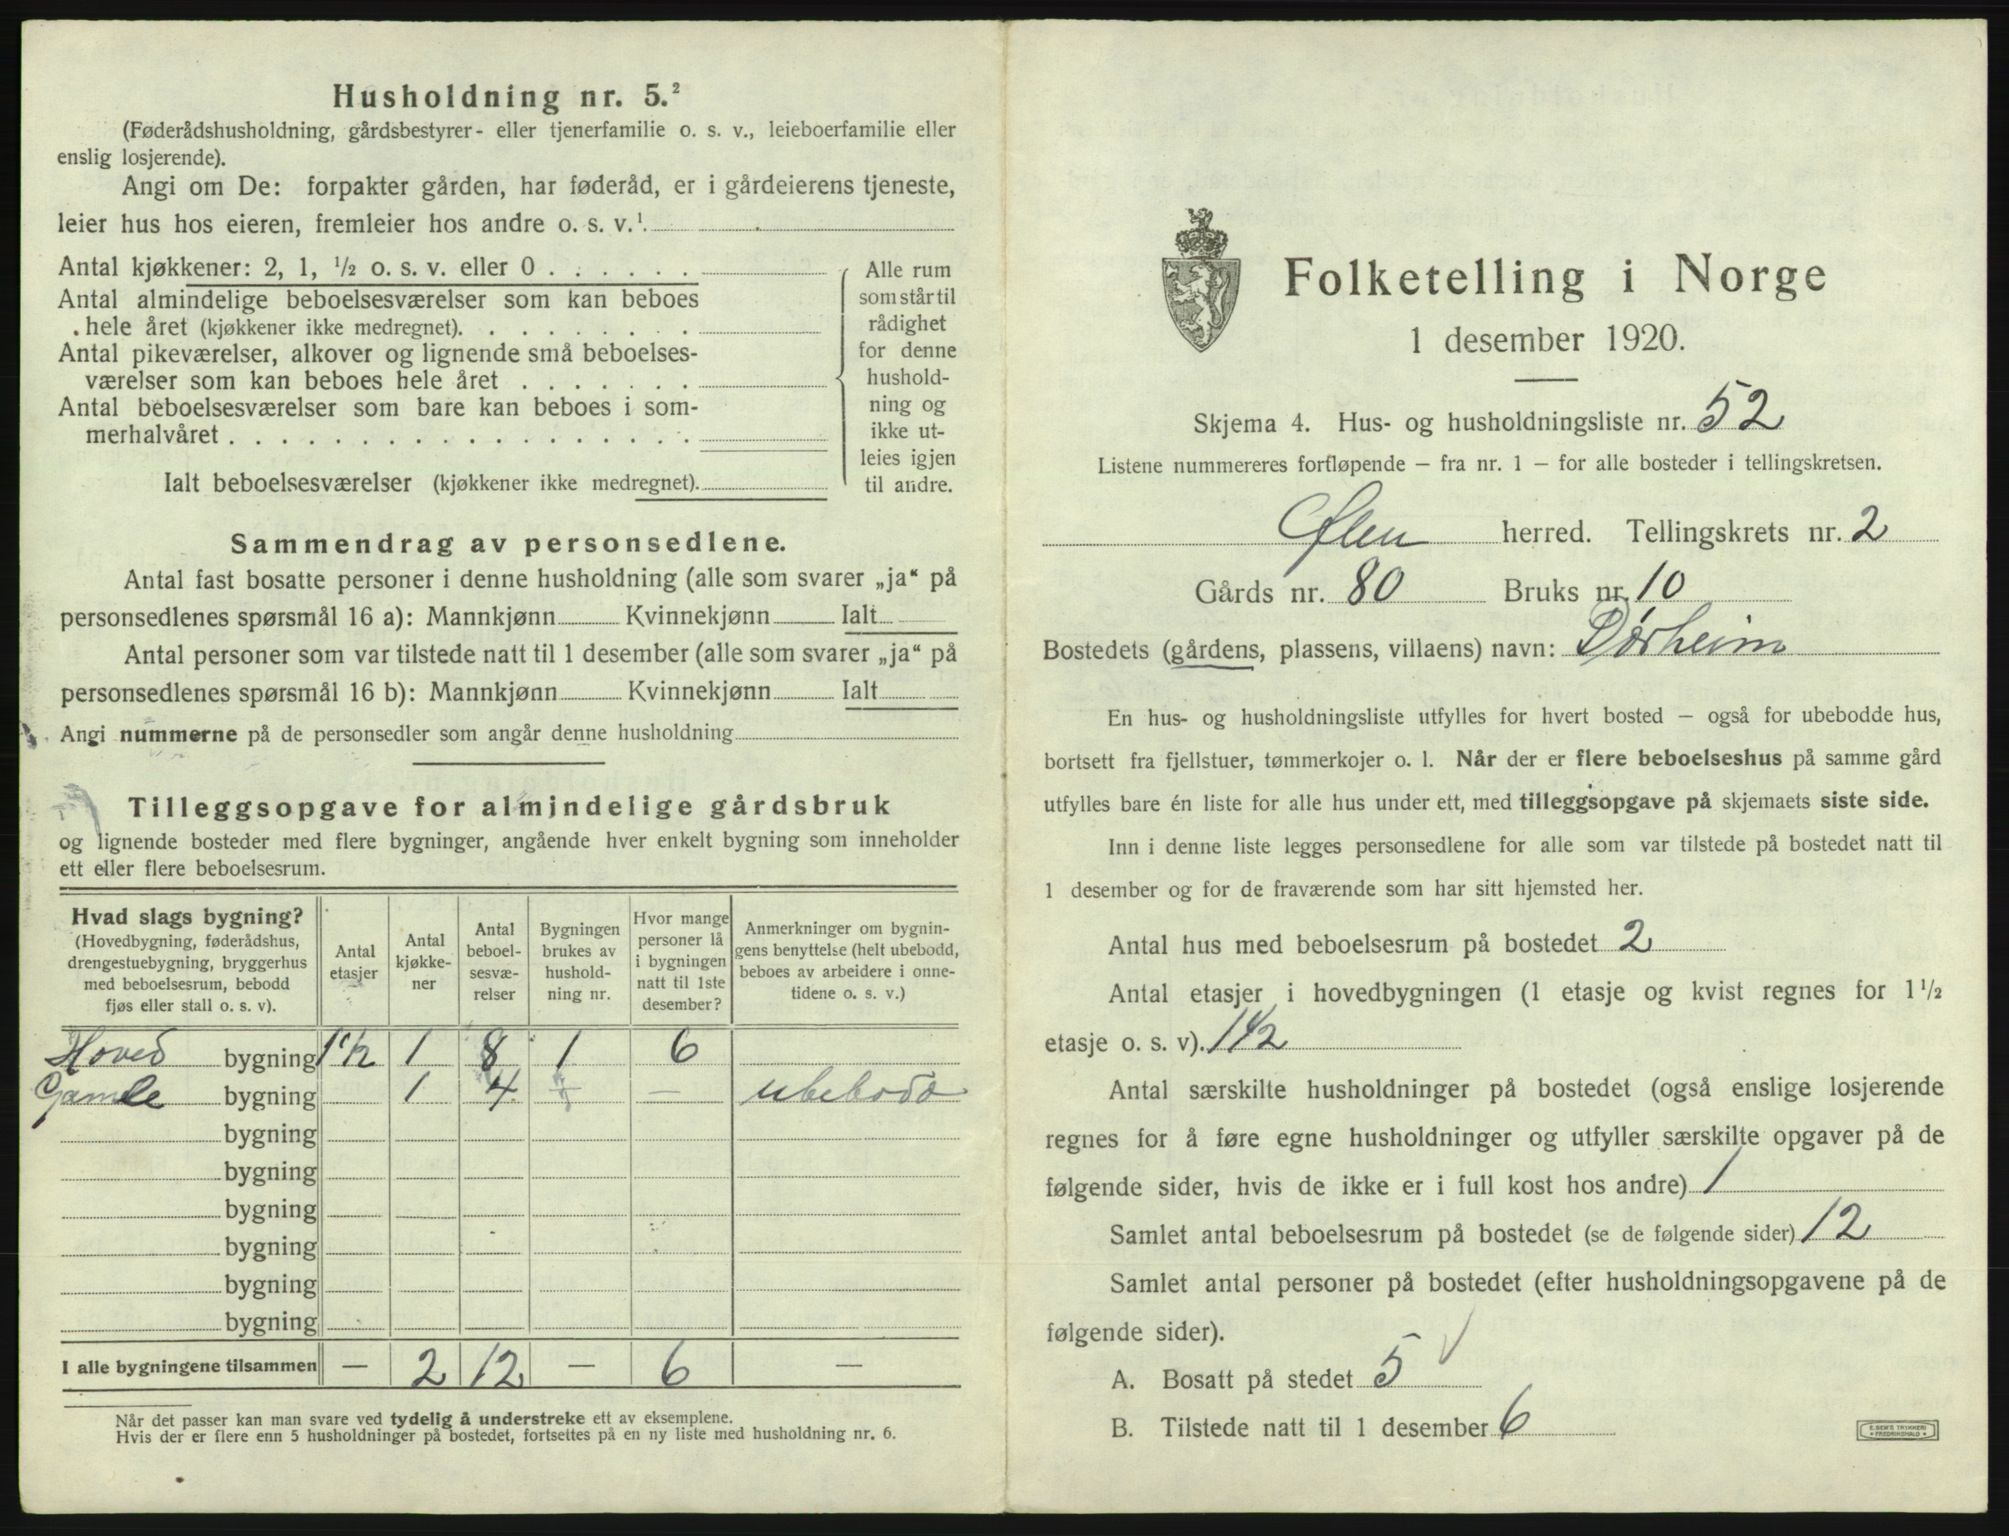 Husholdning nr. 5.²
(Føderådshusholdning, gårdsbestyrer- eller tjenerfamilie o. s. v., leieboerfamilie eller
enslig losjerende).
Angi om De: forpakter gården, har føderåd, er i gårdeierens tjeneste,
leier hus hos eieren, fremleier hos andre o. s. v.¹.
Antal kjøkkener: 2, 1, ½ o. s. v. eller 0 . . . . . .
Antal almindelige beboelsesværelser som kan beboes
hele året (kjøkkener ikke medregnet). . . . . . . . .
Antal pikeværelser, alkover og lignende små beboelses-
værelser som kan beboes hele året . . . . . . .
Antal beboelsesværelser som bare kan beboes i som-
merhalvåret . . . . . . . . . . . . . . . . . .
Ialt beboelsesværelser (kjøkkener ikke medregnet).
Alle rum
som står til
rådighet
for denne
hushold-
ning og
ikke ut-
leies igjen
til andre.
Sammendrag av personsedlene.
Antal fast bosatte personer i denne husholdning (alle som svarer „ja“ på
personsedlenes spørsmål 16 a): Mannkjønn Kvinnekjønn Ialt
Antal personer som var tilstede natt til 1 desember (alle som svarer „ja“ på
personsedlenes spørsmål 16 b): Mannkjønn Kvinnekjønn Ialt
Angi nummerne på de personsedler som angår denne husholdning
Tilleggsopgave for almindelige gårdsbruk
og lignende bosteder med flere bygninger, angående hver enkelt bygning som inneholder
ett eller flere beboelsesrum.
Hvad slags bygning?
(Hovedbygning, føderådshus,
drengestuebygning, bryggerhus
med beboelsesrum, bebodd
fjøs eller stall o. s. v).
Antal
etasjer
Antal
kjøkke-
ner
Antal
beboel-
sesvæ-
relser
Bygningen
brukes av
hushold-
ning nr.
Hvor mange
personer lå
i bygningen
natt til 1ste
desember?
Anmerkninger om bygnin-
gens benyttelse (helt ubebodd,
beboes av arbeidere i onne-
tidene o. s. v.)
Hoved bygning 1½ 1 8 1 6
Gamle bygning 1 4 — ubebodd
bygning
bygning
bygning
bygning
bygning
bygning
I alle bygningene tilsammen — 2 12 — 6 —
Når det passer kan man svare ved tydelig å understreke ett av eksemplene.
Hvis der er flere enn 5 husholdninger på bostedet, fortsettes på en ny liste med husholdning nr. 6.
Folketelling i Norge
1 desember 1920.
Skjema 4. Hus- og husholdningsliste nr. 52
Listene nummereres fortløpende – fra nr. 1 – for alle bosteder i tellingskretsen.
Ølen herred. Tellingskrets nr. 2
Gårds nr. 80 Bruks nr. 10
Bostedets (gårdens, plassens, villaens) navn: Dørheim
En hus- og husholdningsliste utfylles for hvert bosted – også for ubebodde hus,
bortsett fra fjellstuer, tømmerkojer o. l. Når der er flere beboelseshus på samme gård
utfylles bare én liste for alle hus under ett, med tilleggsopgave på skjemaets siste side.
Inn i denne liste legges personsedlene for alle som var tilstede på bostedet natt til
1 desember og for de fraværende som har sitt hjemsted her.
Antal hus med beboelsesrum på bostedet 2
Antal etasjer i hovedbygningen (1 etasje og kvist regnes for 1½
etasje o. s. v). 1½
Antal særskilte husholdninger på bostedet (også enslige losjerende
regnes for å føre egne husholdninger og utfyller særskilte opgaver på de
følgende sider, hvis de ikke er i full kost hos andre) 1
Samlet antal beboelsesrum på bostedet (se de følgende sider) 12
Samlet antal personer på bostedet (efter husholdningsopgavene på de
følgende sider).
A. Bosatt på stedet 5
B. Tilstede natt til 1 desember 6